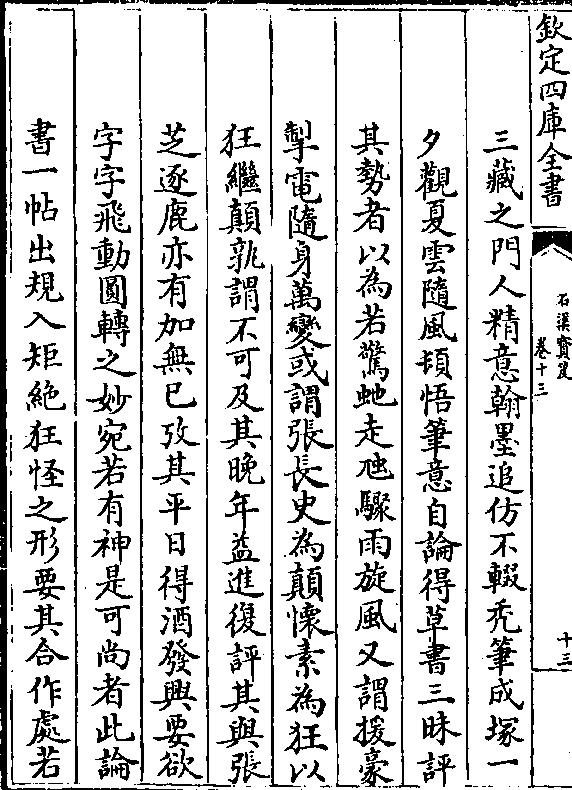 欽定四庫全書
石渠寳笈
卷十三
十三
三藏之門人精意翰墨追仿不輟秃筆成塚一
夕觀夏雲隨風頓悟筆意自論得草書三昧評
其勢者以為若驚虵走虺驟雨旋風又謂援豪
掣電隨身萬變或謂張長史為顛懷素為狂以
狂繼顛孰謂不可及其晚年益進復評其與張
芝逐鹿亦有加無已攷其平日得酒發興要欲
字字飛動圓轉之妙宛若有神是可尚者此論
書一帖出規入矩絶狂怪之形要其合作處若